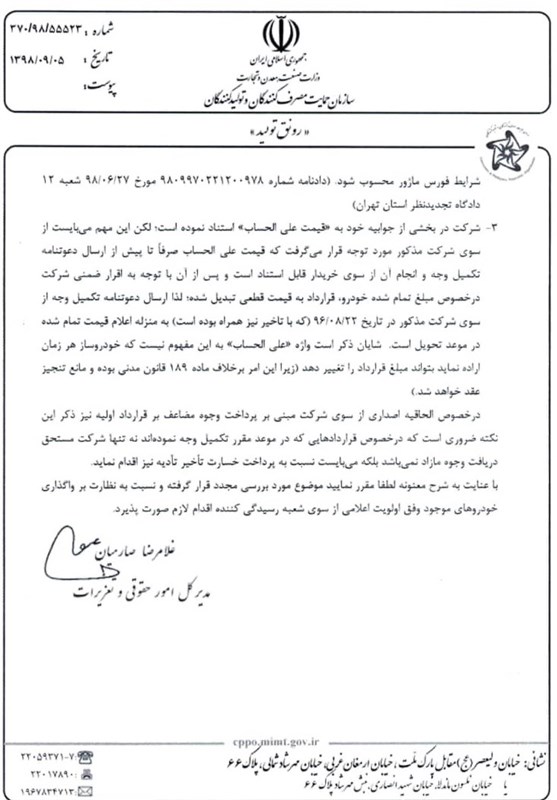 شماره : ۳۷۰/۹۸/۵۵۵۲۳
تاریخ : ۱۳۹۸/۰۹/۰۵
پیوست:
جمهوری اسلامی ایران
وزارت صنعت، معدن و تجارت
سازمان حمایت مصرف کنندگان و تولید کنندگان
«رونق تولید»
شرایط فورس ماژور محسوب شود. (دادنامه شماره ۹۸۰۹۹۷۰۲۲۱۲۰۰۹۷۸ مورخ ۹۸/۰۶/۲۷ شعبه ۱۲
دادگاه تجدیدنظر استان تهران)
۳- شرکت در بخشی از جوابیه خود به «قیمت علی الحساب» استناد نموده است؛ لکن این مهم می‌بایست از
سوی شرکت مذکور مورد توجه قرار می‌گرفت که قیمت علی الحساب صرفاً تا پیش از ارسال دعوتنامه
تکمیل وجه و انجام آن از سوی خریدار قابل استناد است و پس از آن با توجه به اقرار ضمنی شرکت
درخصوص مبلغ تمام شده خودرو، قرارداد به قیمت قطعی تبدیل شده؛ لذا ارسال دعوتنامه تکمیل وجه از
سوی شرکت مذکور در تاریخ ۹۶/۰۸/۲۲ (که با تاخیر نیز همراه بوده است) به منزله اعلام قیمت تمام شده
در موعد تحویل است. شایان ذکر است واژه «علی الحساب» به این مفهوم نیست که خودروساز هر زمان
اراده نماید بتواند مبلغ قرارداد را تغییر دهد (زیرا این امر برخلاف ماده ۱۸۹ قانون مدنی بوده و مانع تنجیز
عقد خواهد شد.)
درخصوص الحاقیه اصداری از سوی شرکت مبنی بر پرداخت وجوه مضاعف بر قرارداد اولیه نیز ذکر این
نکته ضروری است که درخصوص قراردادهایی که در موعد مقرر تکمیل وجه نموده‌اند نه تنها شرکت مستحق
دریافت وجوه مازاد نمی‌باشد بلکه می‌بایست نسبت به پرداخت خسارت تأخیر تأدیه نیز اقدام نماید.
با عنایت به شرح معنونه لطفا مقرر نمایید موضوع مورد بررسی مجدد قرار گرفته و نسبت به نظارت بر واگذاری
خودروهای موجود وفق اولویت اعلامی از سوی شعبه رسیدگی کننده اقدام لازم صورت پذیرد.
غلامرضا صارمیان
مدیر کل امور حقوقی و تعزیرات
cppo.mimt.gov.ir
نشانی: خیابان ولیعصر (عج) مقابل پارک ملت، خیابان ارمغان غربی، خیابان مهرشاد شمالی، پلاک ۶۶
یا خیابان نلسون ماندلا، خیابان شهید انصاری، نبش مهرشاد پلاک ۶۶
۲۲۰۵۹۳۷۱-۷
۲۲۰۱۷۸۹۰
۱۹۶۷۸۳۴۷۱۳